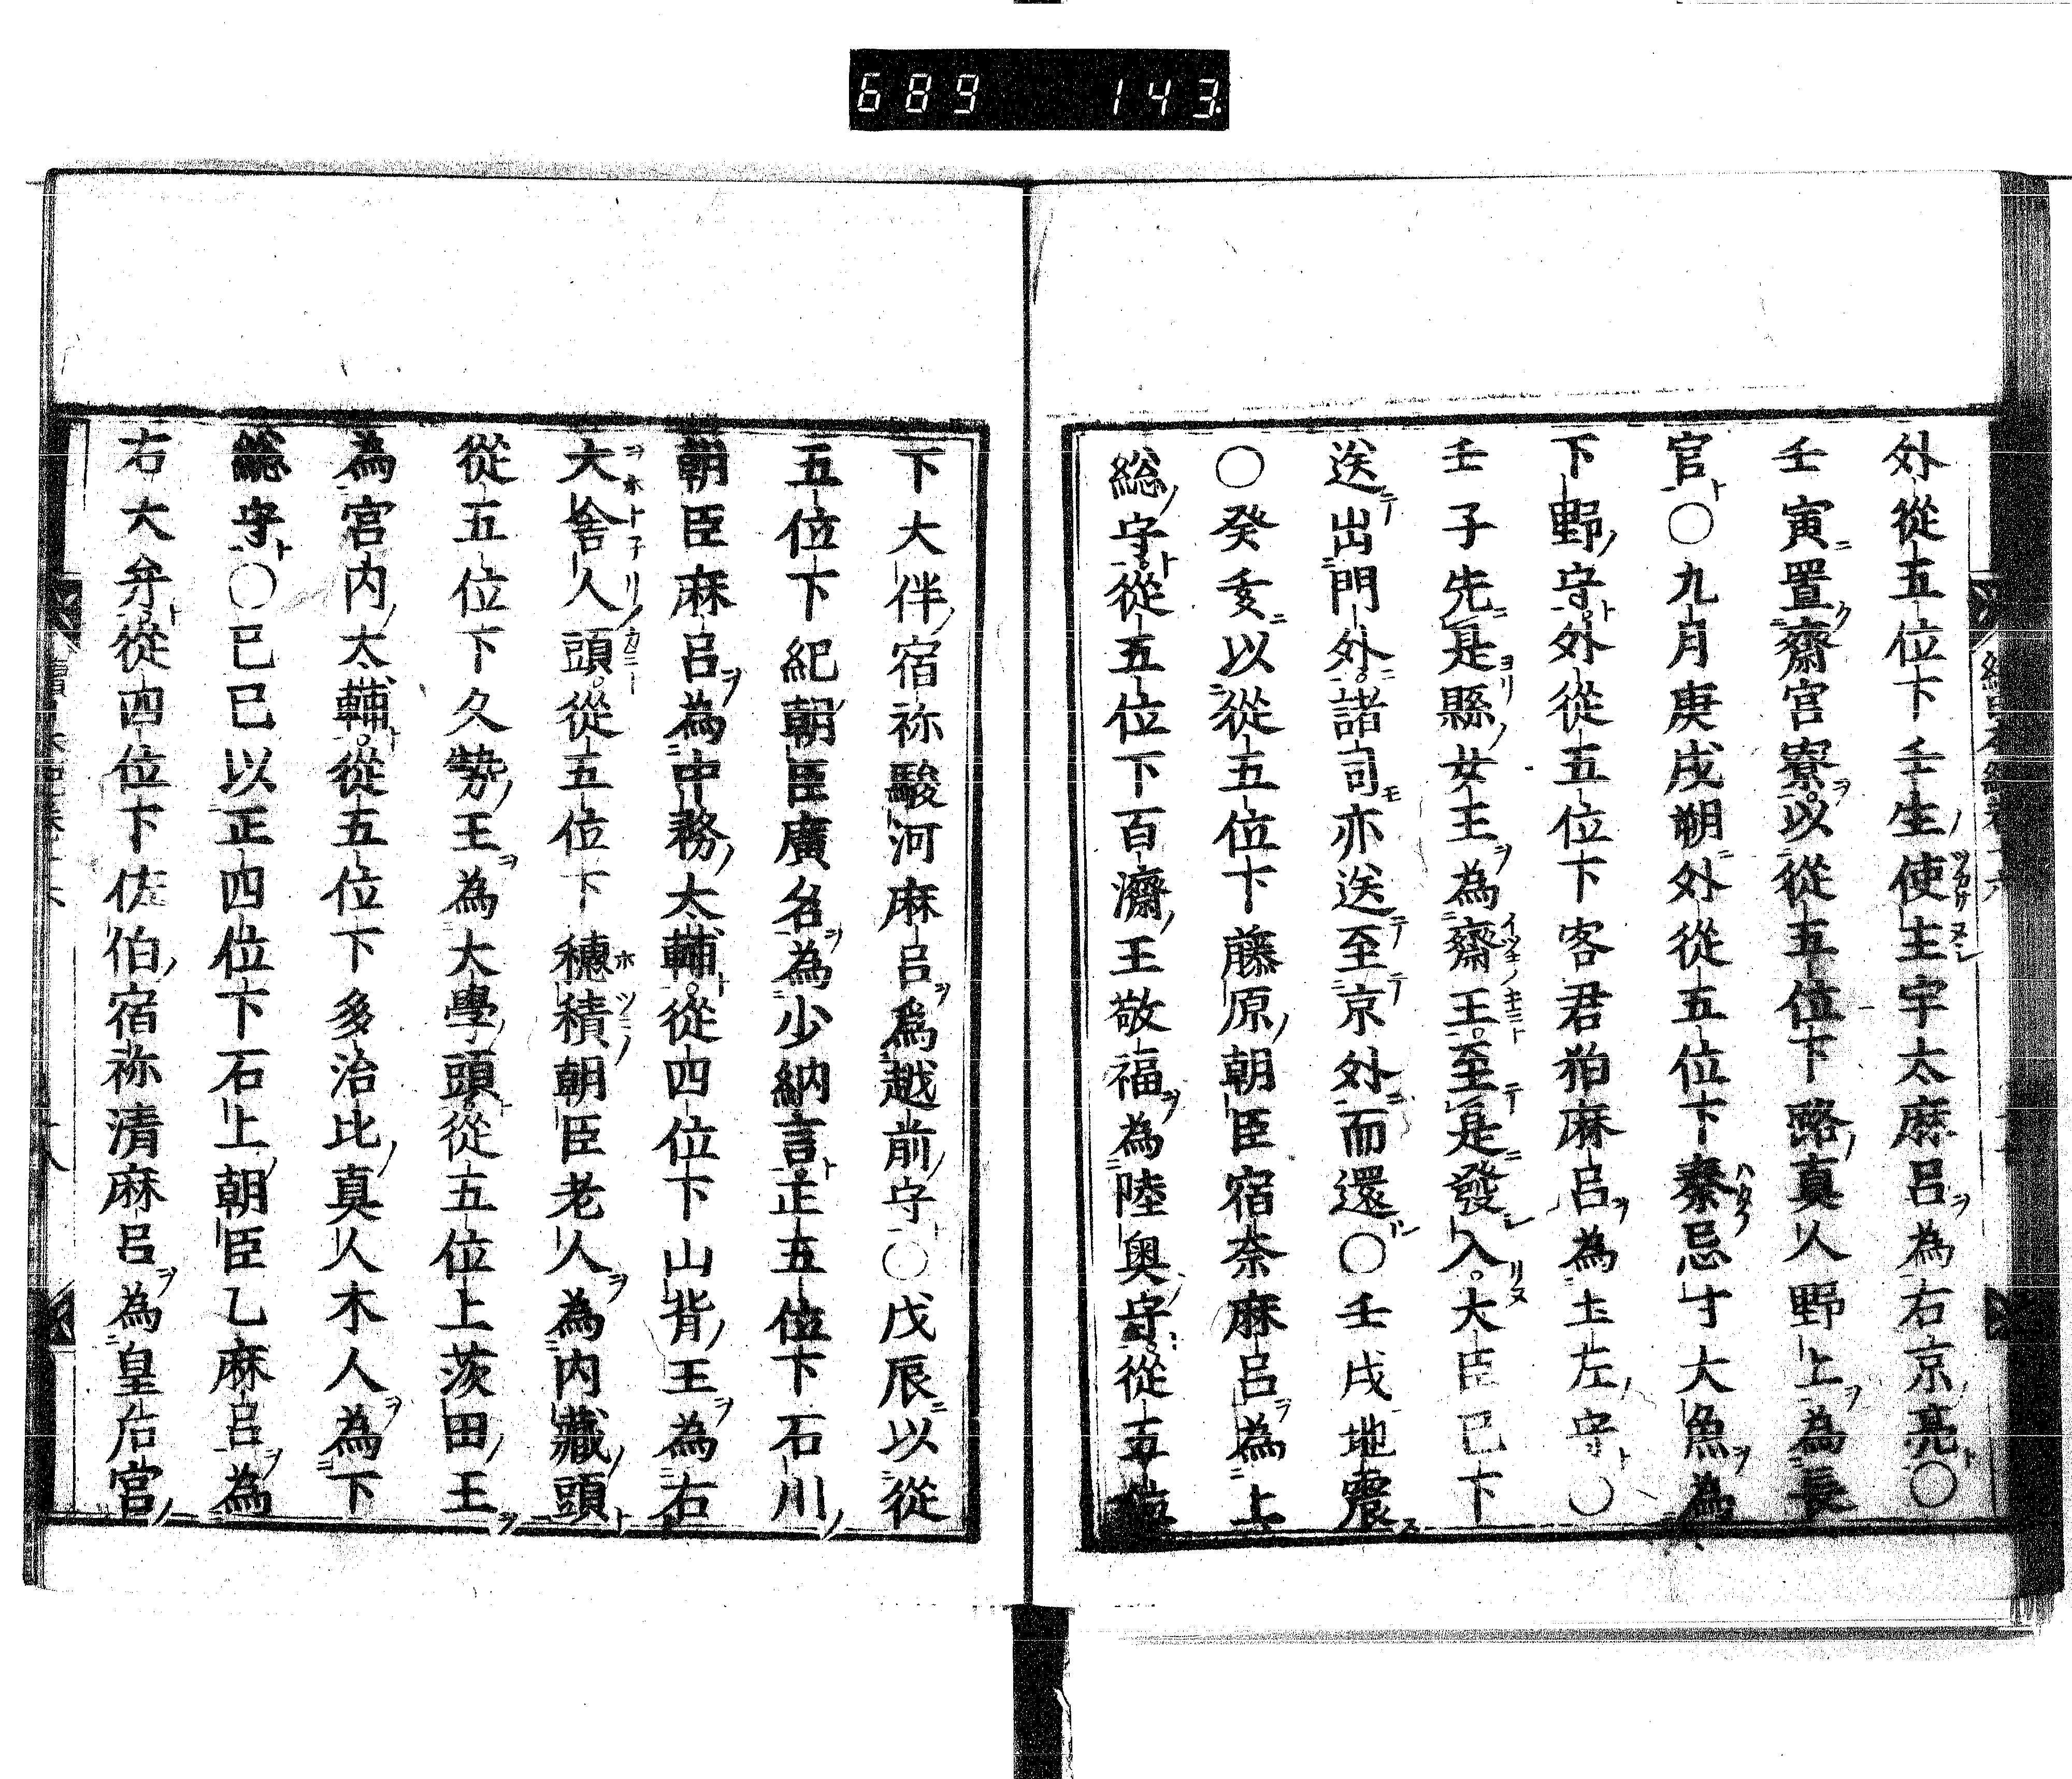 689 143
外從五位下壬生使主宇太麻呂為右京亮○
壬寅置齋宮寮以從五位下路真人野上為長
官○九月庚戌朔外從五位下秦忌寸大魚為
下野守外從五位下客君狛麻呂為土左守○
壬子先是縣女王為齋王至是發入大臣已下
送出門外諸司亦送至京外而還○壬戌地震
○癸亥以從五位下藤原朝臣宿奈麻呂為上
総守從五位下百濟王敬福為陸奥守從五位
下大伴宿祢駿河麻呂為越前守○戊辰以從
五位下紀朝臣廣名為少納言正五位下石川
朝臣麻呂為中務太輔從四位下山背王為右
大舎人頭從五位下穗積朝臣老人為内藏頭
從五位下久勢王為大學頭從五位上茨田王
為宮内太輔從五位下多治比真人木人為下
総守○已巳以正四位下石上朝臣乙麻呂為
右大弁從四位下佐伯宿祢清麻呂為皇后宮